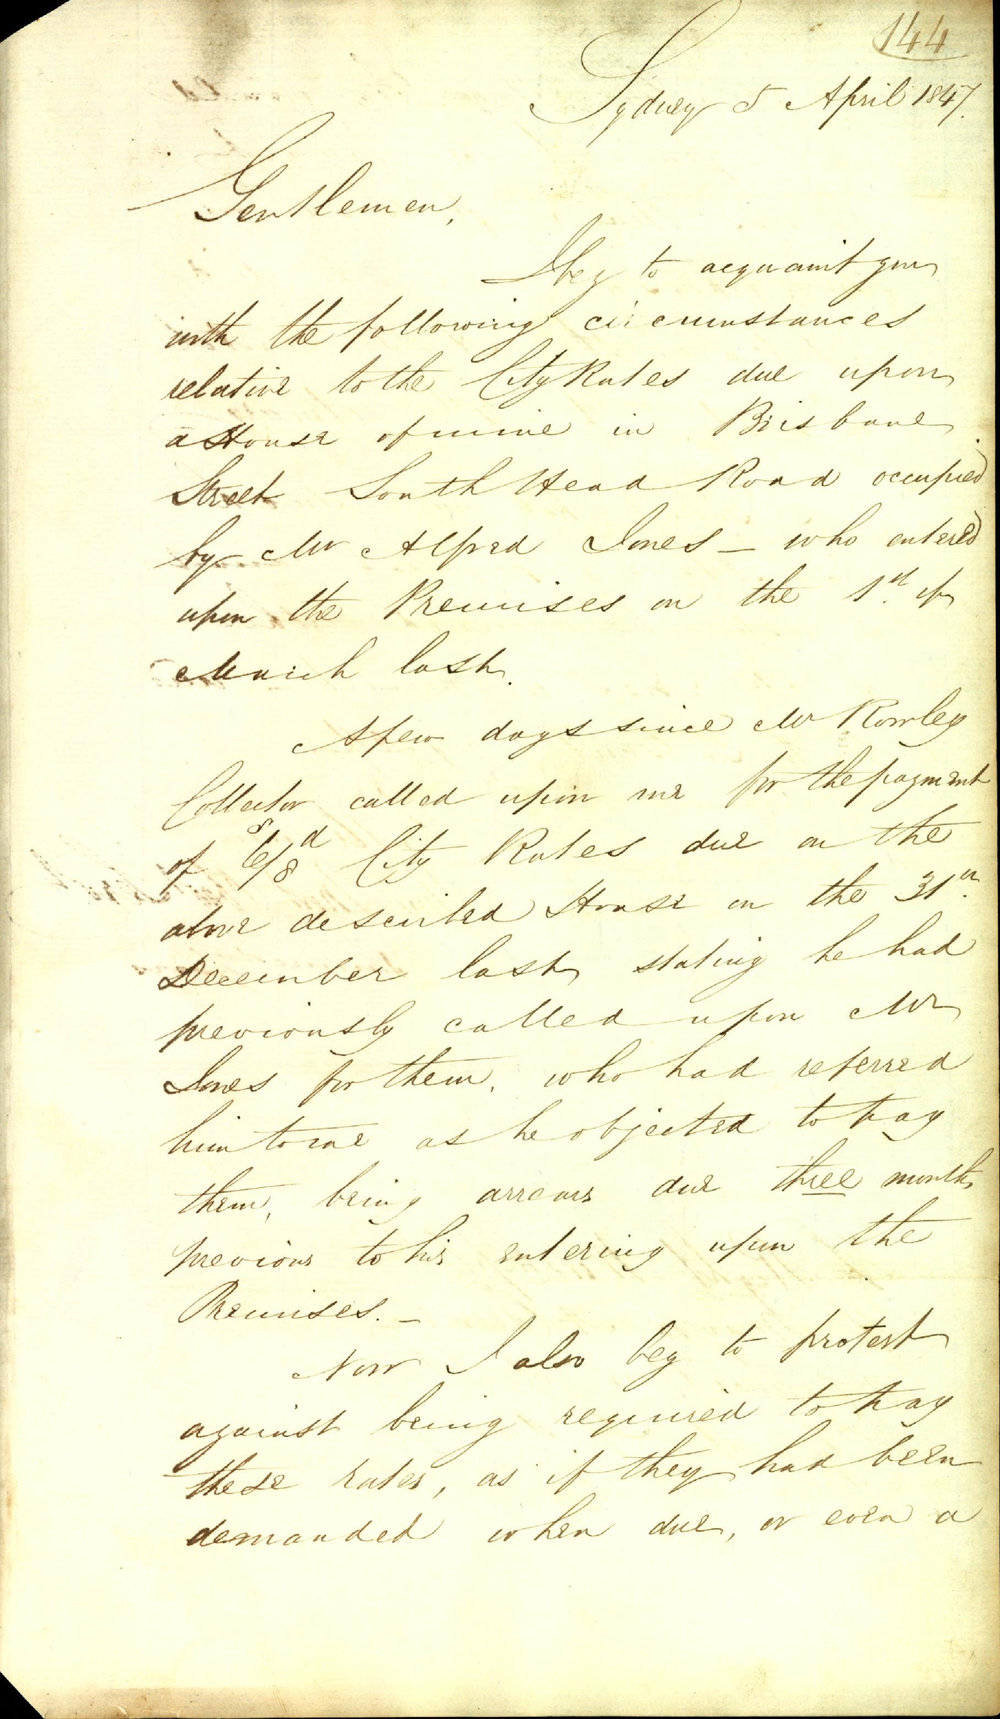 144
Sydney 5 April 1847.
Gentlemen,
I beg to acquaint you
with the following circumstances
relative to the City Rates due upon
a House of mine in Brisbane
Street South Head Road occupied
by Mr Alfred Jones — who entered
upon the Premises on the 1st of
March last.
A few days since Mr Rowley
Collector called upon me for the payment
of 6s/8d City Rates due on the
above described House on the 31st
December last, stating he had
previously called upon Mr
Jones for them, who had referred
him to me as he objected to pay
them, being arrears due three months
previous to his entering upon the
Premises. —
Now I also beg to protest
against being required to pay
these rates, as if they had been
demanded when due, or even a